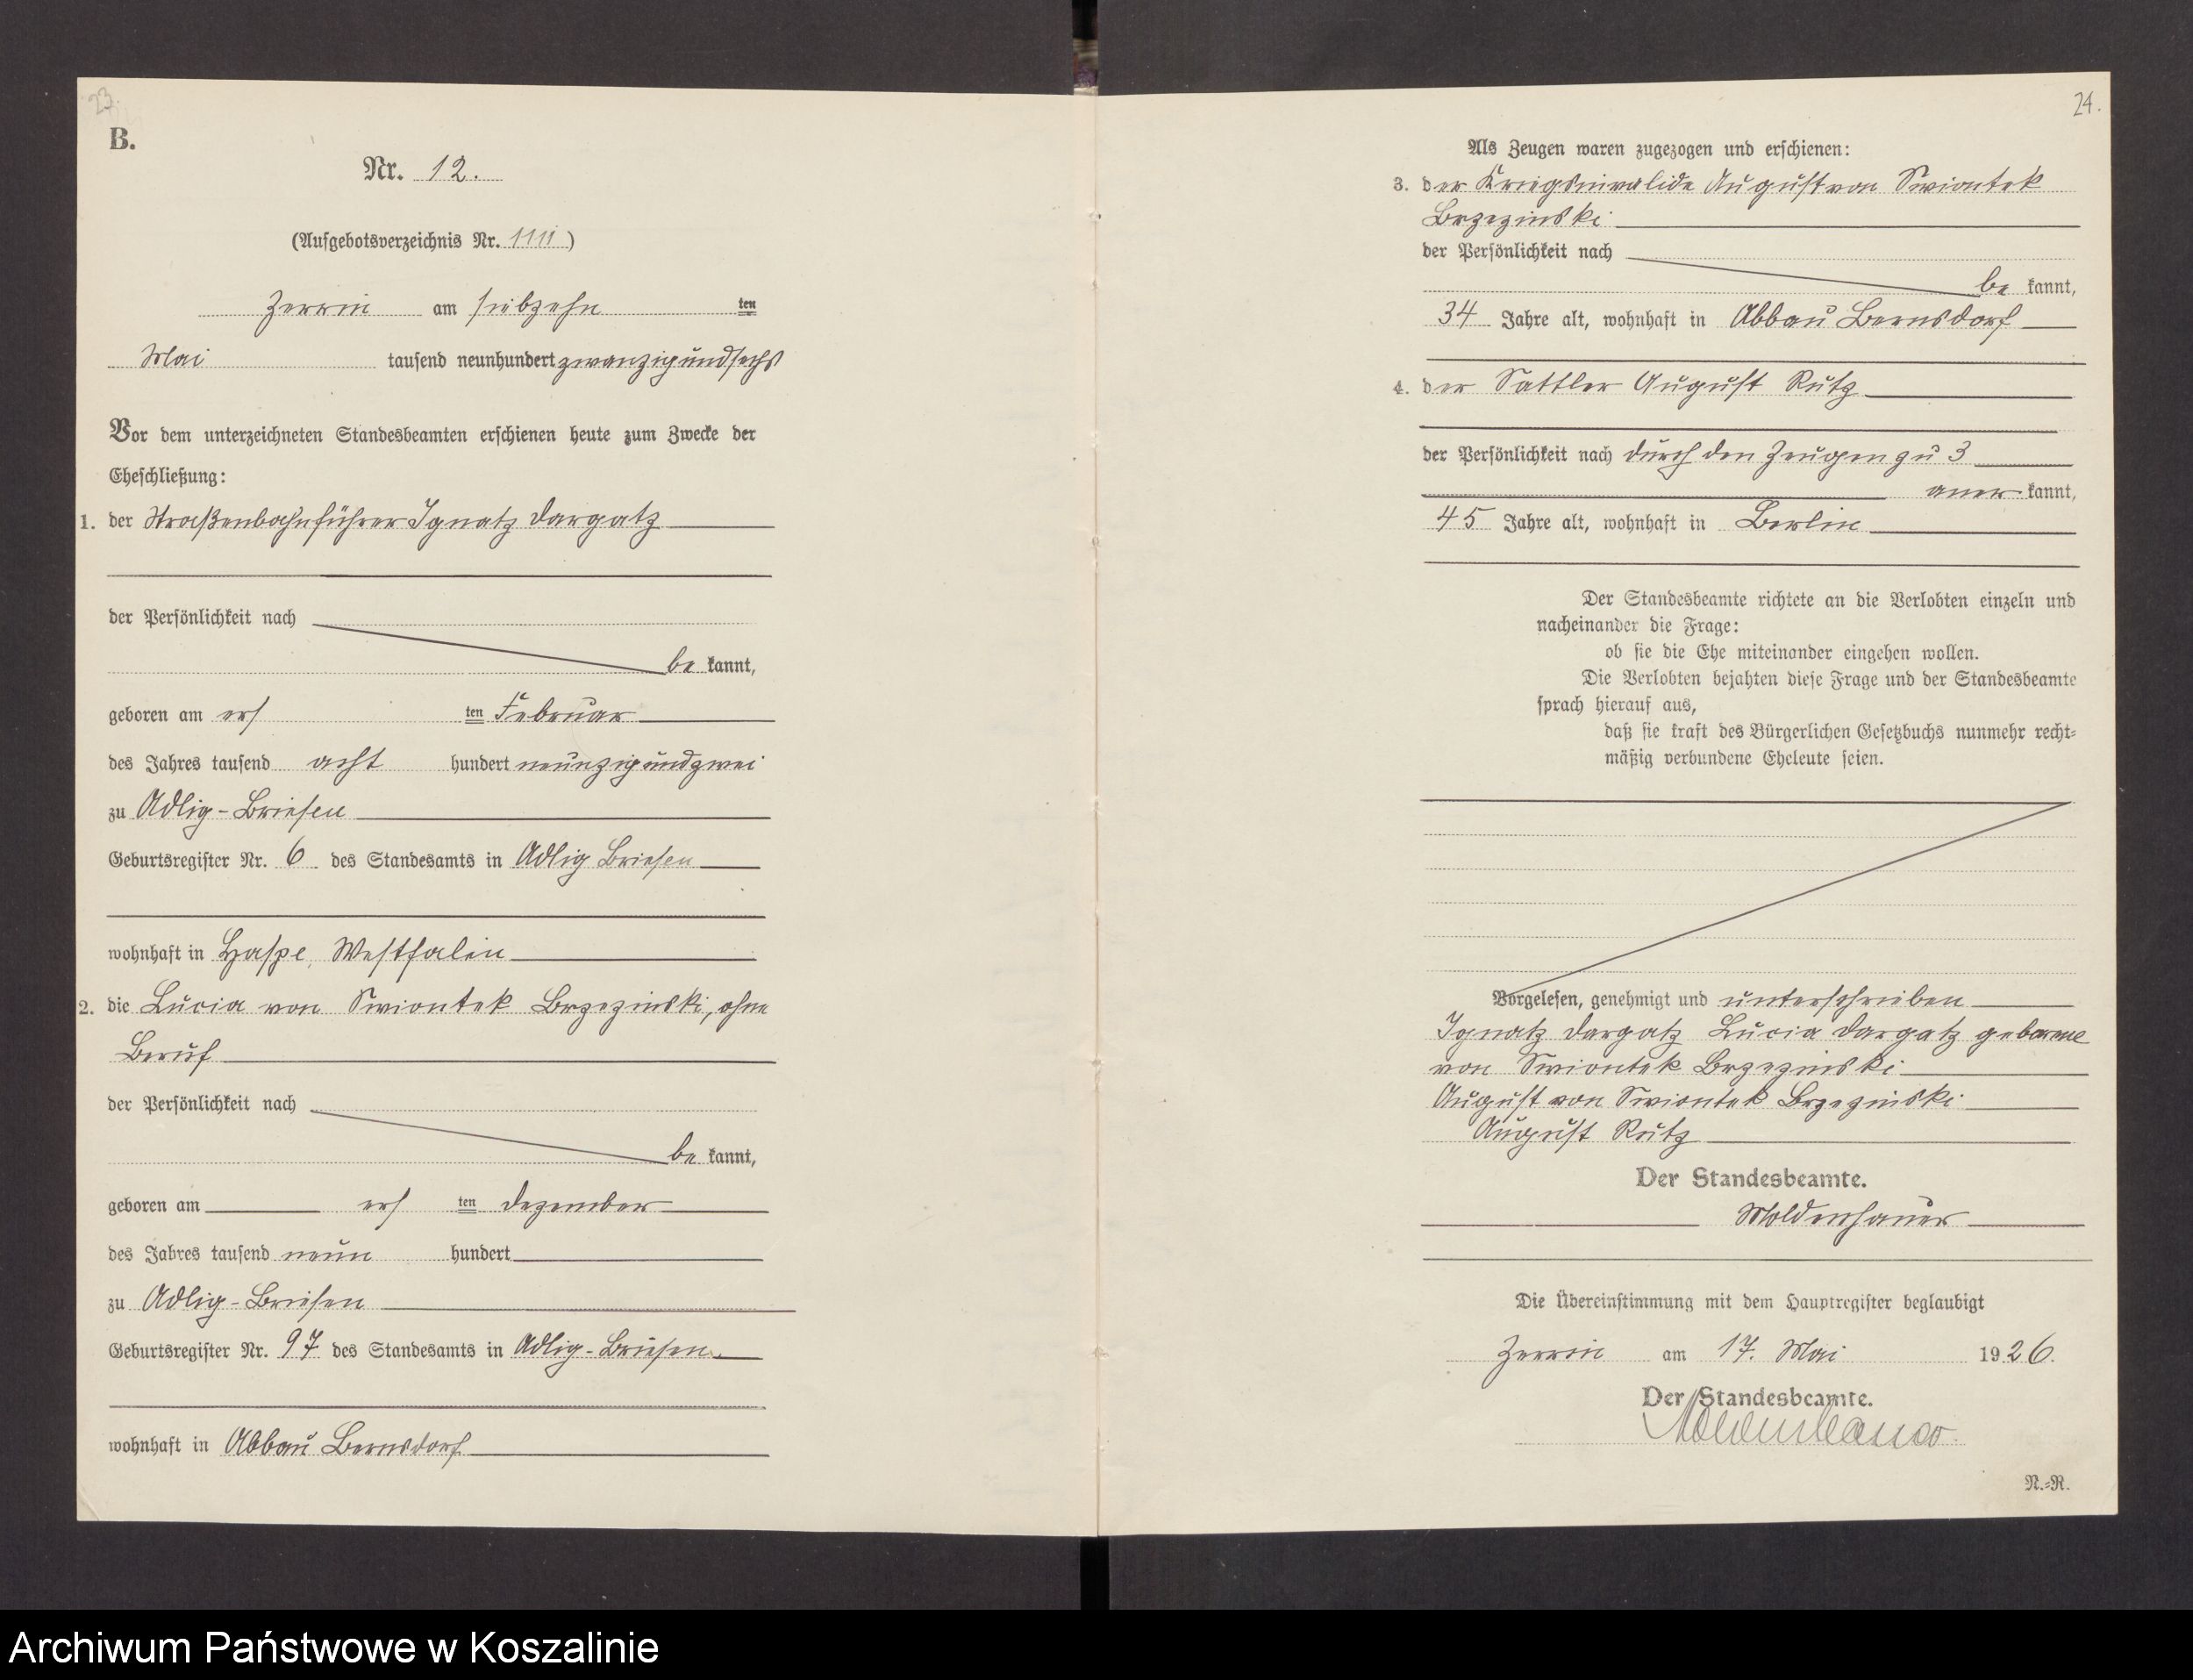 23.
B.
Nr. 12.
(Aufgebotsverzeichnis Nr. 1111)
Zerrin am siebzehn ten
Mai tausend neunhundert zwanzigundsechs
Vor dem unterzeichneten Standesbeamten erschienen heute zum Zwecke der
Eheschließung:
1. der Straßenbahnführer Ignatz Dargatz
der Persönlichkeit nach
be kannt,
geboren am ers ten Februar
des Jahres tausend acht hundert neunzigundzwei
zu Adlig-Briesen
Geburtsregister Nr. 6 des Standesamts in Adlig Briesen
wohnhaft in Haspe, Westfalen
2. die Lucia von Swiontek Brzezinski, ohne
Beruf
der Persönlichkeit nach
be kannt,
geboren am ers ten Dezember
des Jahres tausend neun hundert
zu Adlig-Briesen
Geburtsregister Nr. 97 des Standesamts in Adlig-Briesen
wohnhaft in Abbau Bernsdorf
24.
Als Zeugen waren zugezogen und erschienen:
3. der Kriegsinvalide August von Swiontek
Brzezinski
der Persönlichkeit nach
be kannt,
34 Jahre alt, wohnhaft in Abbau Bernsdorf
4. der Sattler August Rutz
der Persönlichkeit nach durch den Zeugen zu 3
aner kannt,
45 Jahre alt, wohnhaft in Berlin
Der Standesbeamte richtete an die Verlobten einzeln und
nacheinander die Frage:
ob sie die Ehe miteinander eingehen wollen.
Die Verlobten bejahten diese Frage und der Standesbeamte
sprach hierauf aus,
daß sie kraft des Bürgerlichen Gesetzbuchs nunmehr recht-
mäßig verbundene Eheleute seien.
Vorgelesen, genehmigt und unterschrieben
Ignatz Dargatz Lucia Dargatz geborene
von Swiontek Brzezinski
August von Swiontek Brzezinski
August Rutz
Der Standesbeamte.
Moldenhauer
Die Übereinstimmung mit dem Hauptregister beglaubigt
Zerrin am 17. Mai 1926.
Der Standesbeamte.
Moldenhauer.
N.-R.
Archiwum Państwowe w Koszalinie